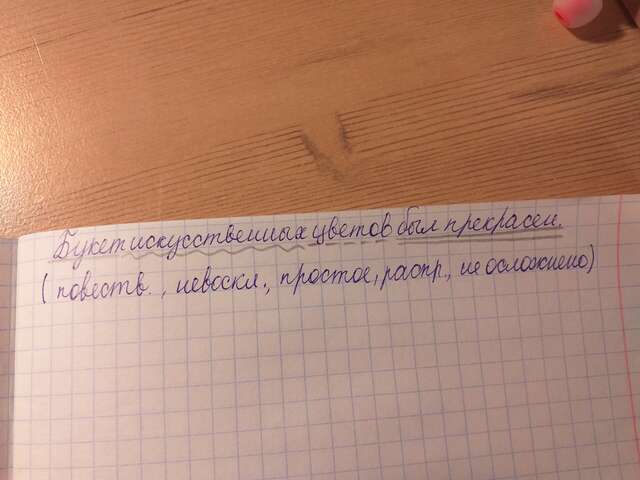 Букет искусственных цветов был прекрасен.
(повеств., невоскл., простое, распр., не осложнено)